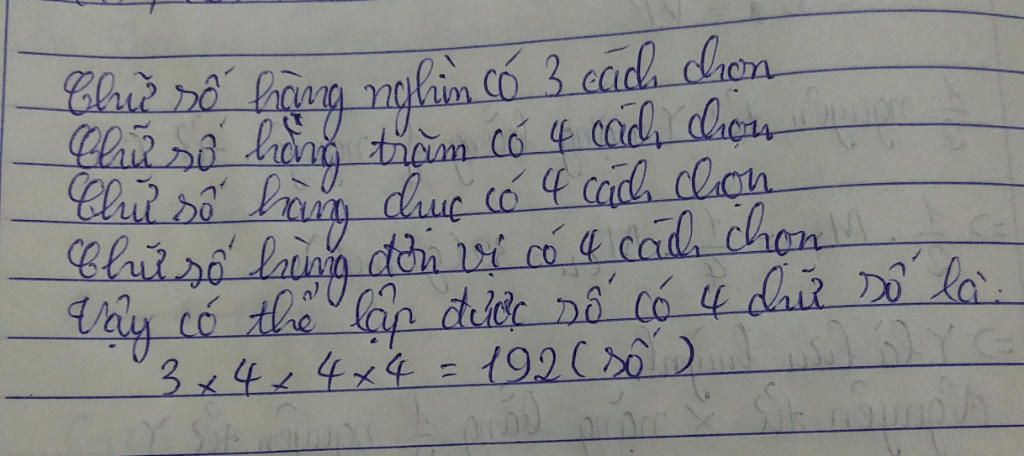 Chữ số hàng nghìn có 3 cách chọn
Chữ số hàng trăm có 4 cách chọn
Chữ số hàng chục có 4 cách chọn
Chữ số hàng đơn vị có 4 cách chọn
Vậy có thể lập được số có 4 chữ số là:
3 x 4 x 4 x 4 = 192 (số)